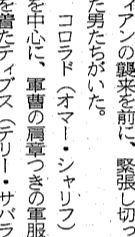 ィアンの襲来を前に、緊張し切っ
た男たちがいた。
コロラド（オマー・シャリフ）
を中心に、軍曹の肩章つきの軍服
を着たティブス（テリー・サバラ